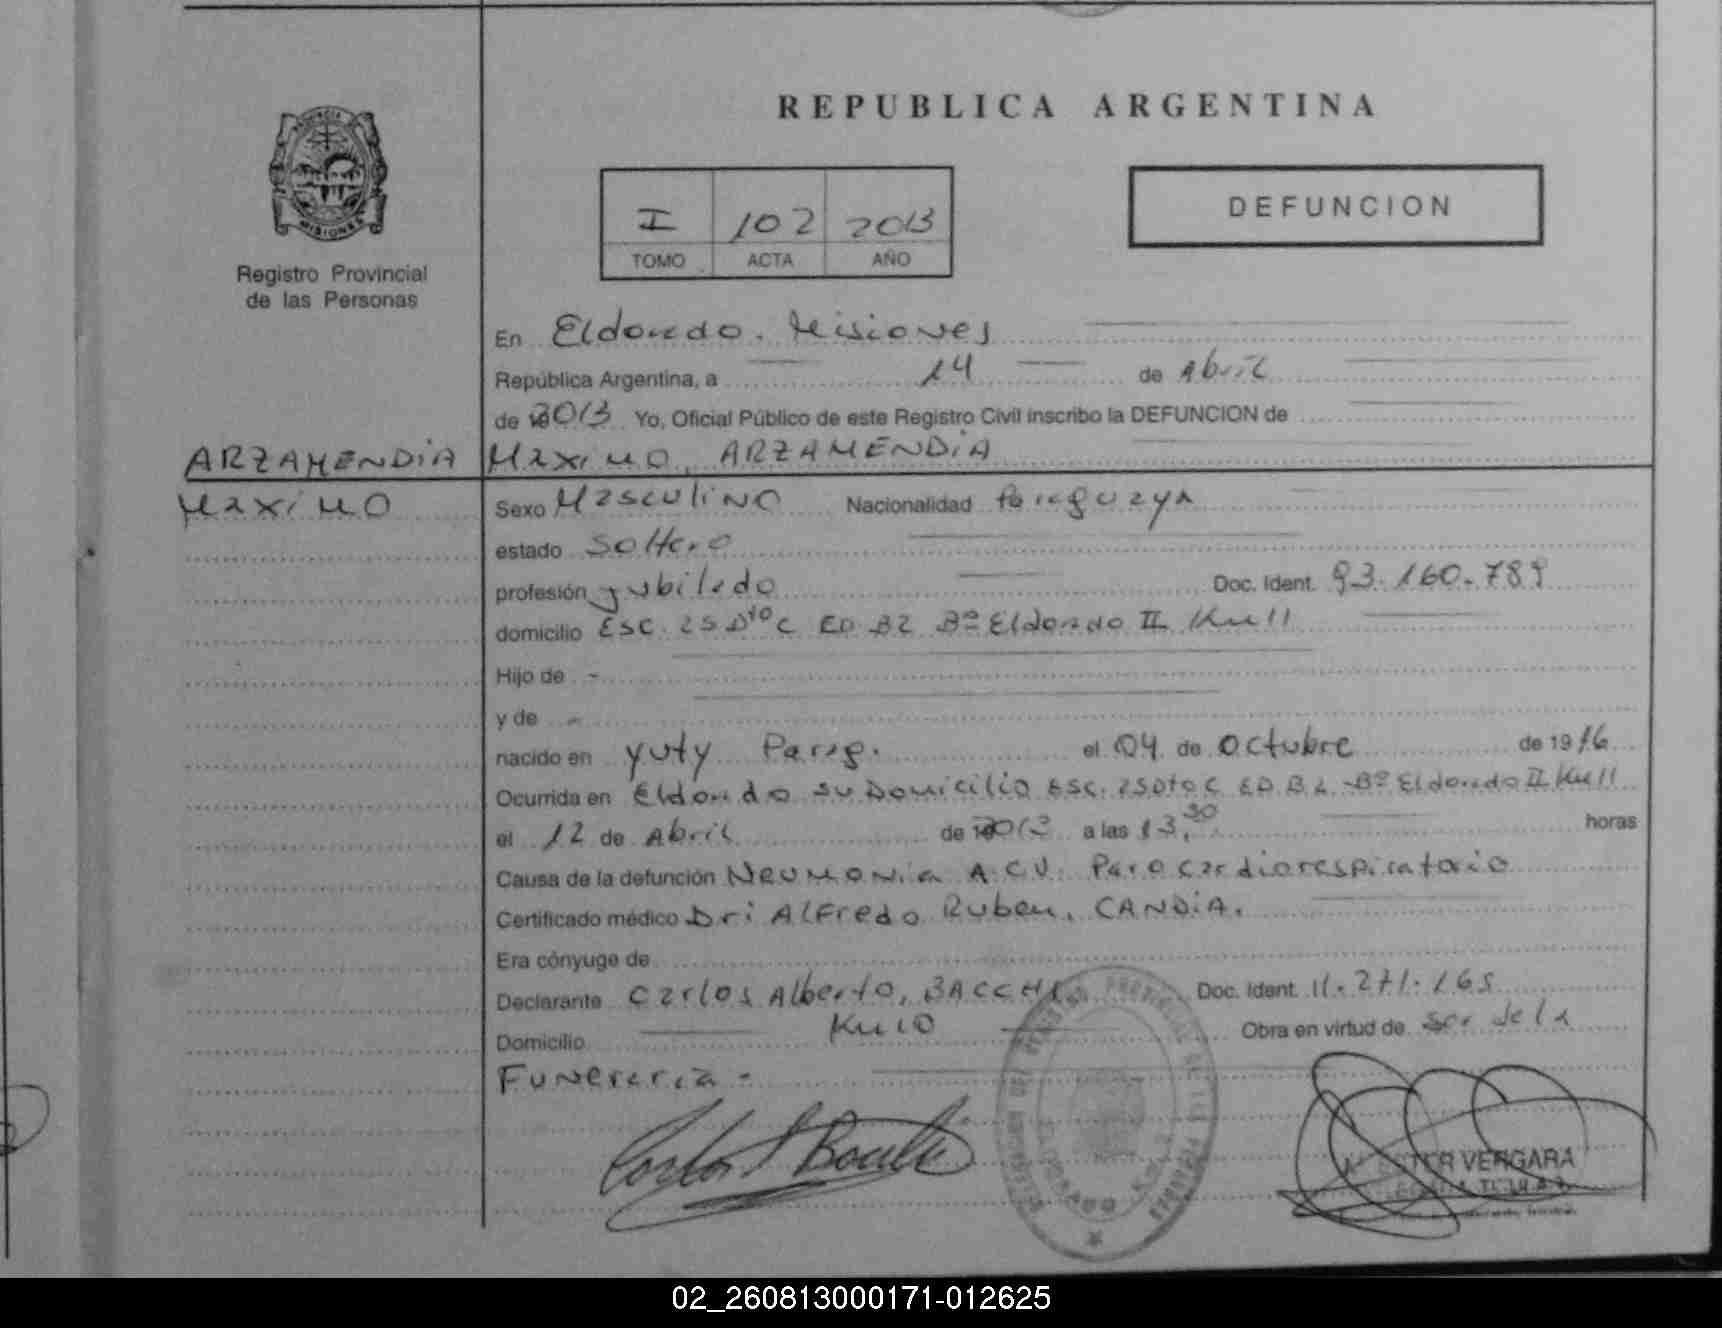 REPUBLICA ARGENTINA
PROVINCIA
MISIONES
Registro Provincial
de las Personas
I 102 2013
TOMO ACTA AÑO
DEFUNCION
En Eldorado. Misiones
República Argentina, a 14 de Abril
de 2013 Yo, Oficial Público de este Registro Civil inscribo la DEFUNCION de
ARZAMENDIA Maximo, ARZAMENDIA
Maximo
Sexo Masculino Nacionalidad Paraguaya
estado Soltero
profesión yubilado Doc. Ident. 93.160.789
domicilio Esc. 25 Dto C ED B2 Bº Eldorado II Km 11
Hijo de -
y de -
nacido en yuty Parag. el 04 de octubre de 1916
Ocurrida en Eldorado su Domicilio Esc. 25 Dto C ED. B2 - Bº Eldorado II Km 11
el 12 de Abril de 2013 a las 13,30 horas
Causa de la defunción Neumonia A.C.V. Paro cardiorespiratorio
Certificado médico Dr: ALFredo Ruben, CANDIA.
Era cónyuge de
Declarante Carlos Alberto, BACCHI Doc. Ident. 11.271.165
Domicilio Km 10 Obra en virtud de Ser de la
Funeraria -
VERGARA
02_260813000171-012625